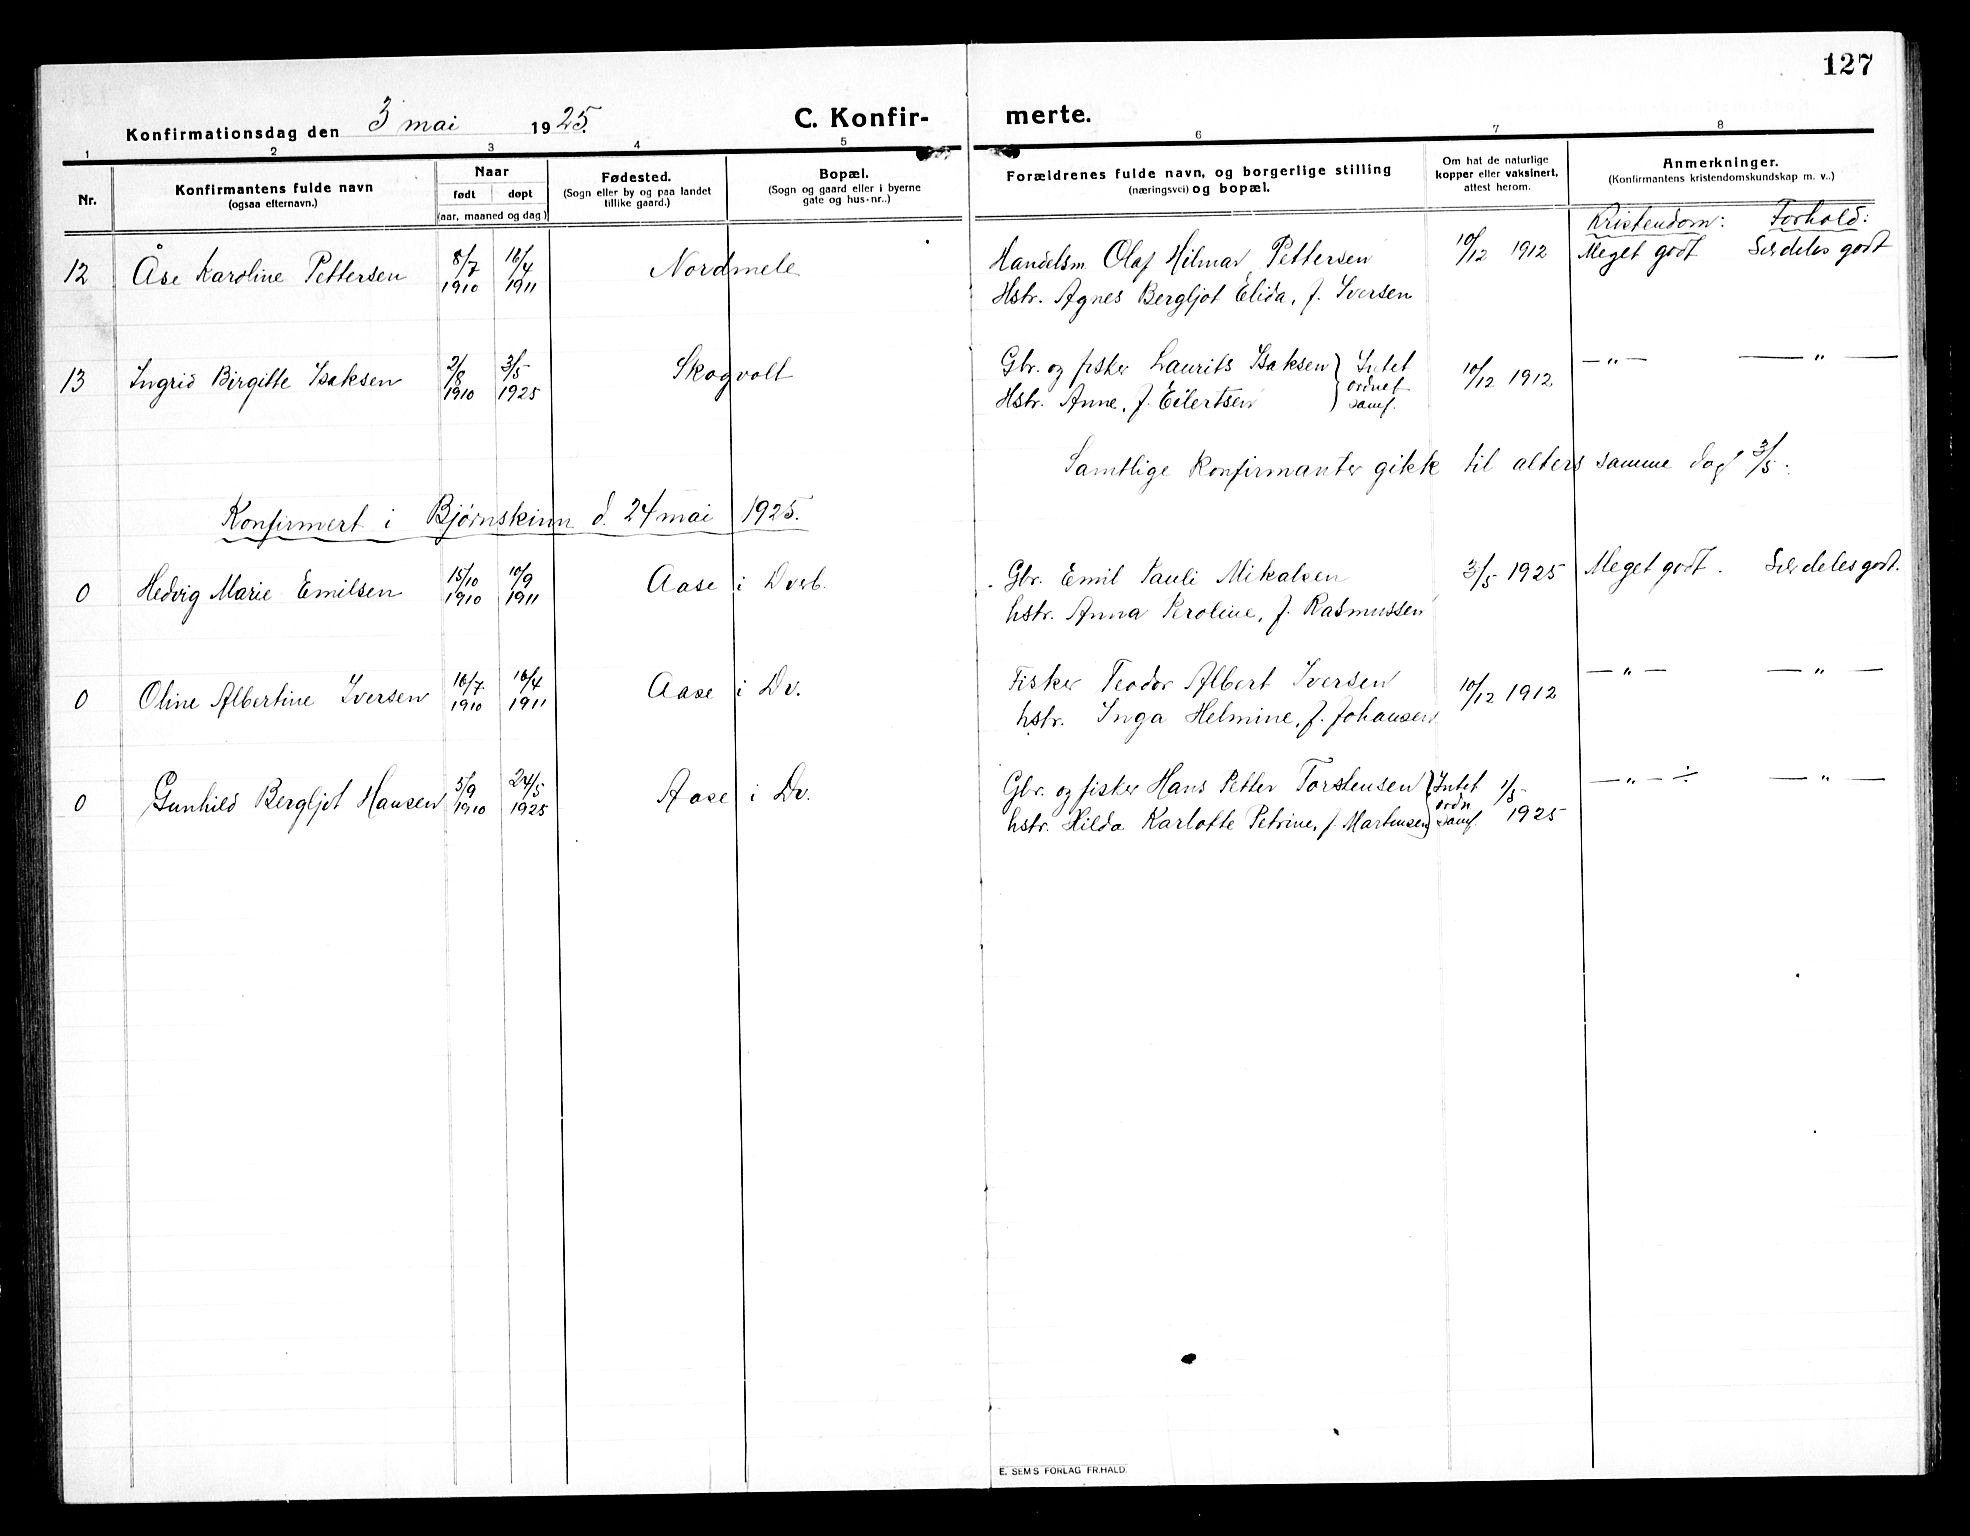 127
Konfirmationsdag den 3 mai 1925. C. Konfir- merte.
1 2 3 4 5 6 7 8
Nr. Konfirmantens fulde navn (ogsaa efternavn.) Naar født døpt (aar, maaned og dag.) Fødested. (Sogn eller by og paa landet tillike gaard.) Bopæl. (Sogn og gaard eller i byerne gate og hus-nr..) Forældrenes fulde navn, og borgerlige stilling (næringsvei) og bopæl. Om hat de naturlige kopper eller vaksinert, attest herom. Anmerkninger. (Konfirmantens kristendomskundskap m. v..)
Kristendom: Forhold:
12 Åse Karoline Pettersen 8/7 1910 16/4 1911 Nordmele Handelsm. Olaf Hilmar Pettersen 10/12 1912 Meget godt Særdeles godt
Hstr. Agnes Bergljot Elida, f. Iversen
13 Ingrid Birgitte Isaksen 2/8 1910 3/5 1925 Skogvolt Gbr. og fisker Laurits Isaksen } Intet ordnet samf. 10/12 1912 — " — — " —
Hstr. Anne, f. Eilertsen
Samtlige konfirmanter gikk til alters samme dag 3/5.
Konfirmert i Bjørnskinn d. 24 mai 1925.
0 Hedvig Marie Emilsen 15/10 1910 10/9 1911 Aase i Dverb. Gbr. Emil Pauli Mikalsen 3/5 1925 Meget godt. Særdeles godt.
hstr. Anna Peroline, f. Rasmussen
0 Oline Albertine Iversen 16/7 1910 16/4 1911 Aase i Dv. Fisker Teodor Albert Iversen 10/12 1912 — " — — " —
hstr. Inga Helmine, f. Johansen
0 Gunhild Bergljot Hansen 5/9 1910 24/5 1925 Aase i Dv. Gbr. og fisker Hans Petter Torstensen } Intet ordn samf. 1/5 1925 — " — ÷ — " —
hstr. Hilda Karlotte Petrine, f. Martensen
E. SEMS FORLAG FR.HALD.